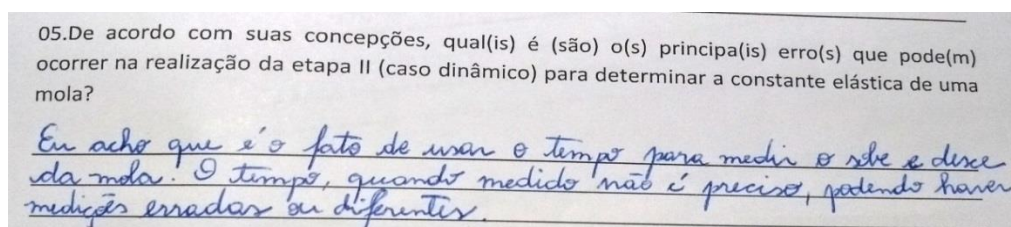 05.De acordo com suas concepções, qual(is) é (são) o(s) principa(is) erro(s) que pode(m)
ocorrer na realização da etapa II (caso dinâmico) para determinar a constante elástica de uma
mola?
Eu acho que é o fato de usar o tempo para medir o sobe e desce
da mola. O tempo, quando medido não é preciso, podendo haver
medições erradas ou diferentes.